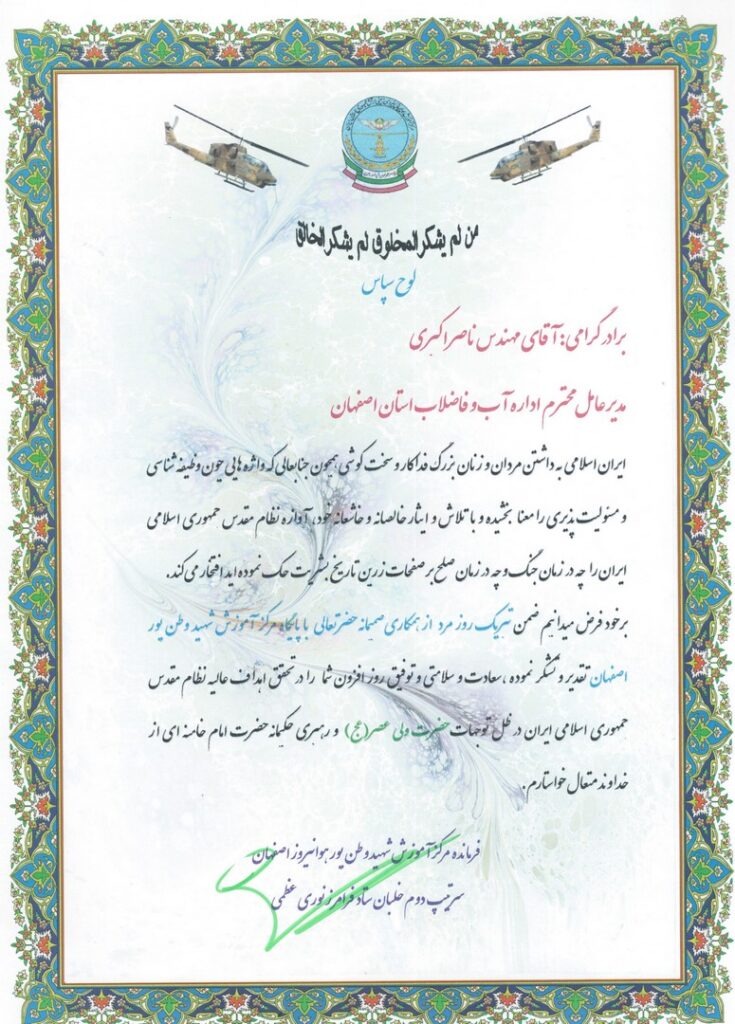 من لم یشکر المخلوق لم یشکر الخالق
لوح سپاس
برادر گرامی: آقای مهندس ناصر اکبری
مدیرعامل محترم اداره آب و فاضلاب استان اصفهان
ایران اسلامی به داشتن مردان و زنان بزرگ فداکار و سخت کوشی همچون جنابعالی که واژه هایی چون وظیفه شناسی
و مسئولیت پذیری را معنا بخشیده و با تلاش و ایثار خالصانه و خاشعانه خود، آوازه نظام مقدس جمهوری اسلامی
ایران را چه در زمان جنگ و چه در زمان صلح بر صفحات زرین تاریخ بشریت حک نموده اید افتخار می کند.
برخود فرض میدانیم ضمن تبریک روز مرد از همکاری صمیمانه حضرتعالی با پایگاه مرکز آموزش شهید وطن پور
اصفهان تقدیر و تشکر نموده ، سعادت و سلامتی و توفیق روز افزون شما را در تحقق اهداف عالیه نظام مقدس
جمهوری اسلامی ایران در ظل توجهات حضرت ولی عصر(عج) و رهبری حکیمانه حضرت امام خامنه ای از
خداوند متعال خواستارم.
فرمانده مرکز آموزش شهید وطن پور هوانیروز اصفهان
سرتیپ دوم خلبان ستاد فرامرز نوری عظمی